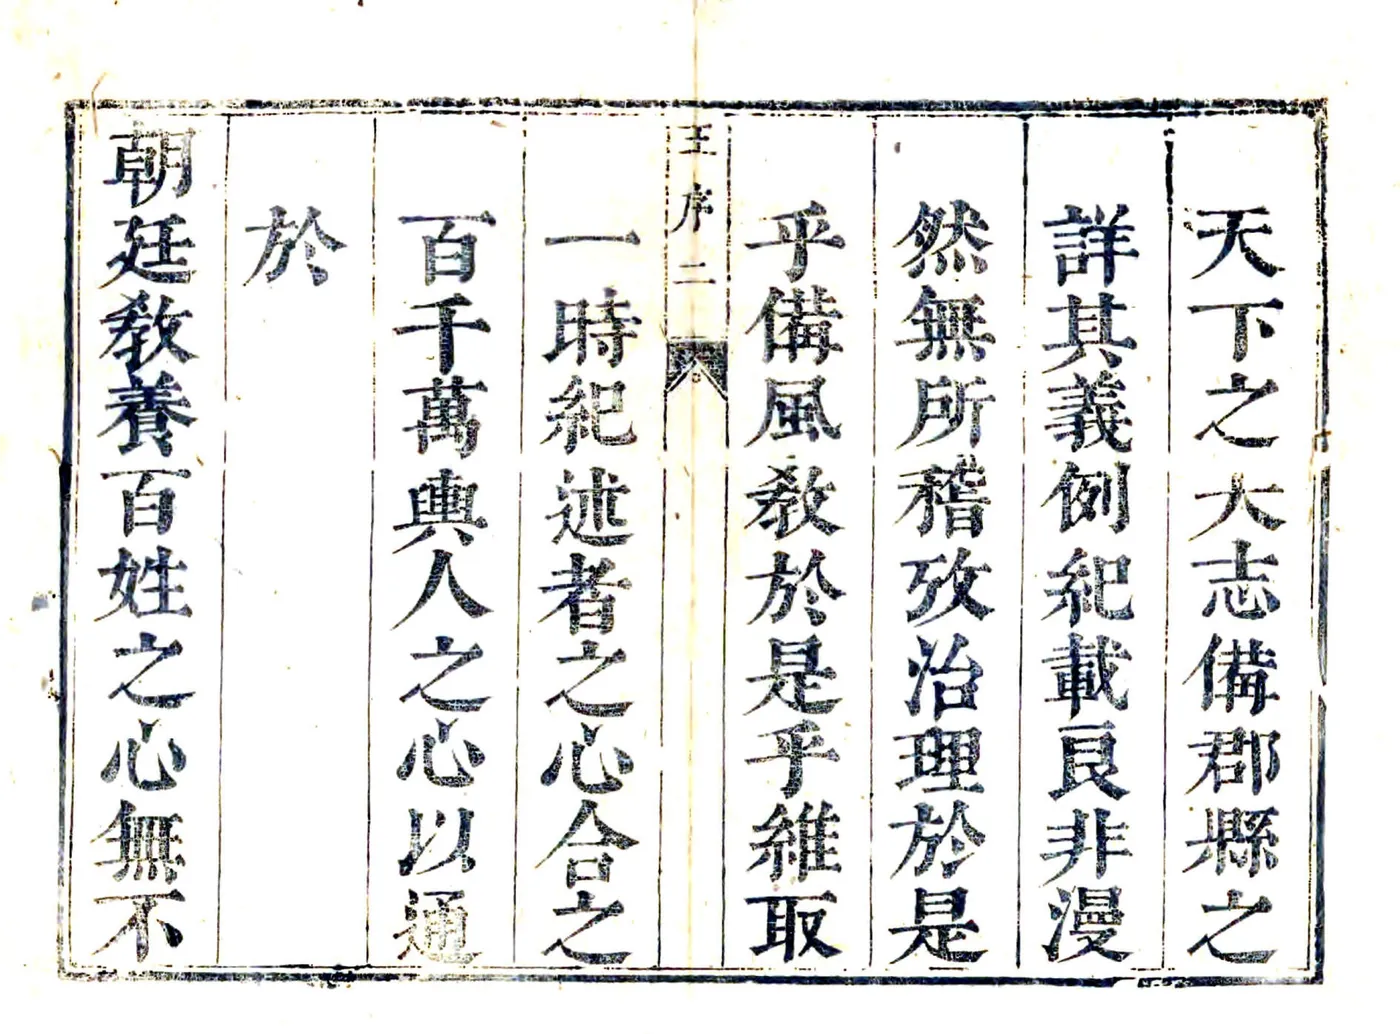 天下之大志備郡縣之
詳其義例紀載良非漫
然無所稽攷治理於是
乎備風敎於是乎維取
王序 二
一時紀述者之心合之
百千萬輿人之心以通
於
朝廷敎養百姓之心無不